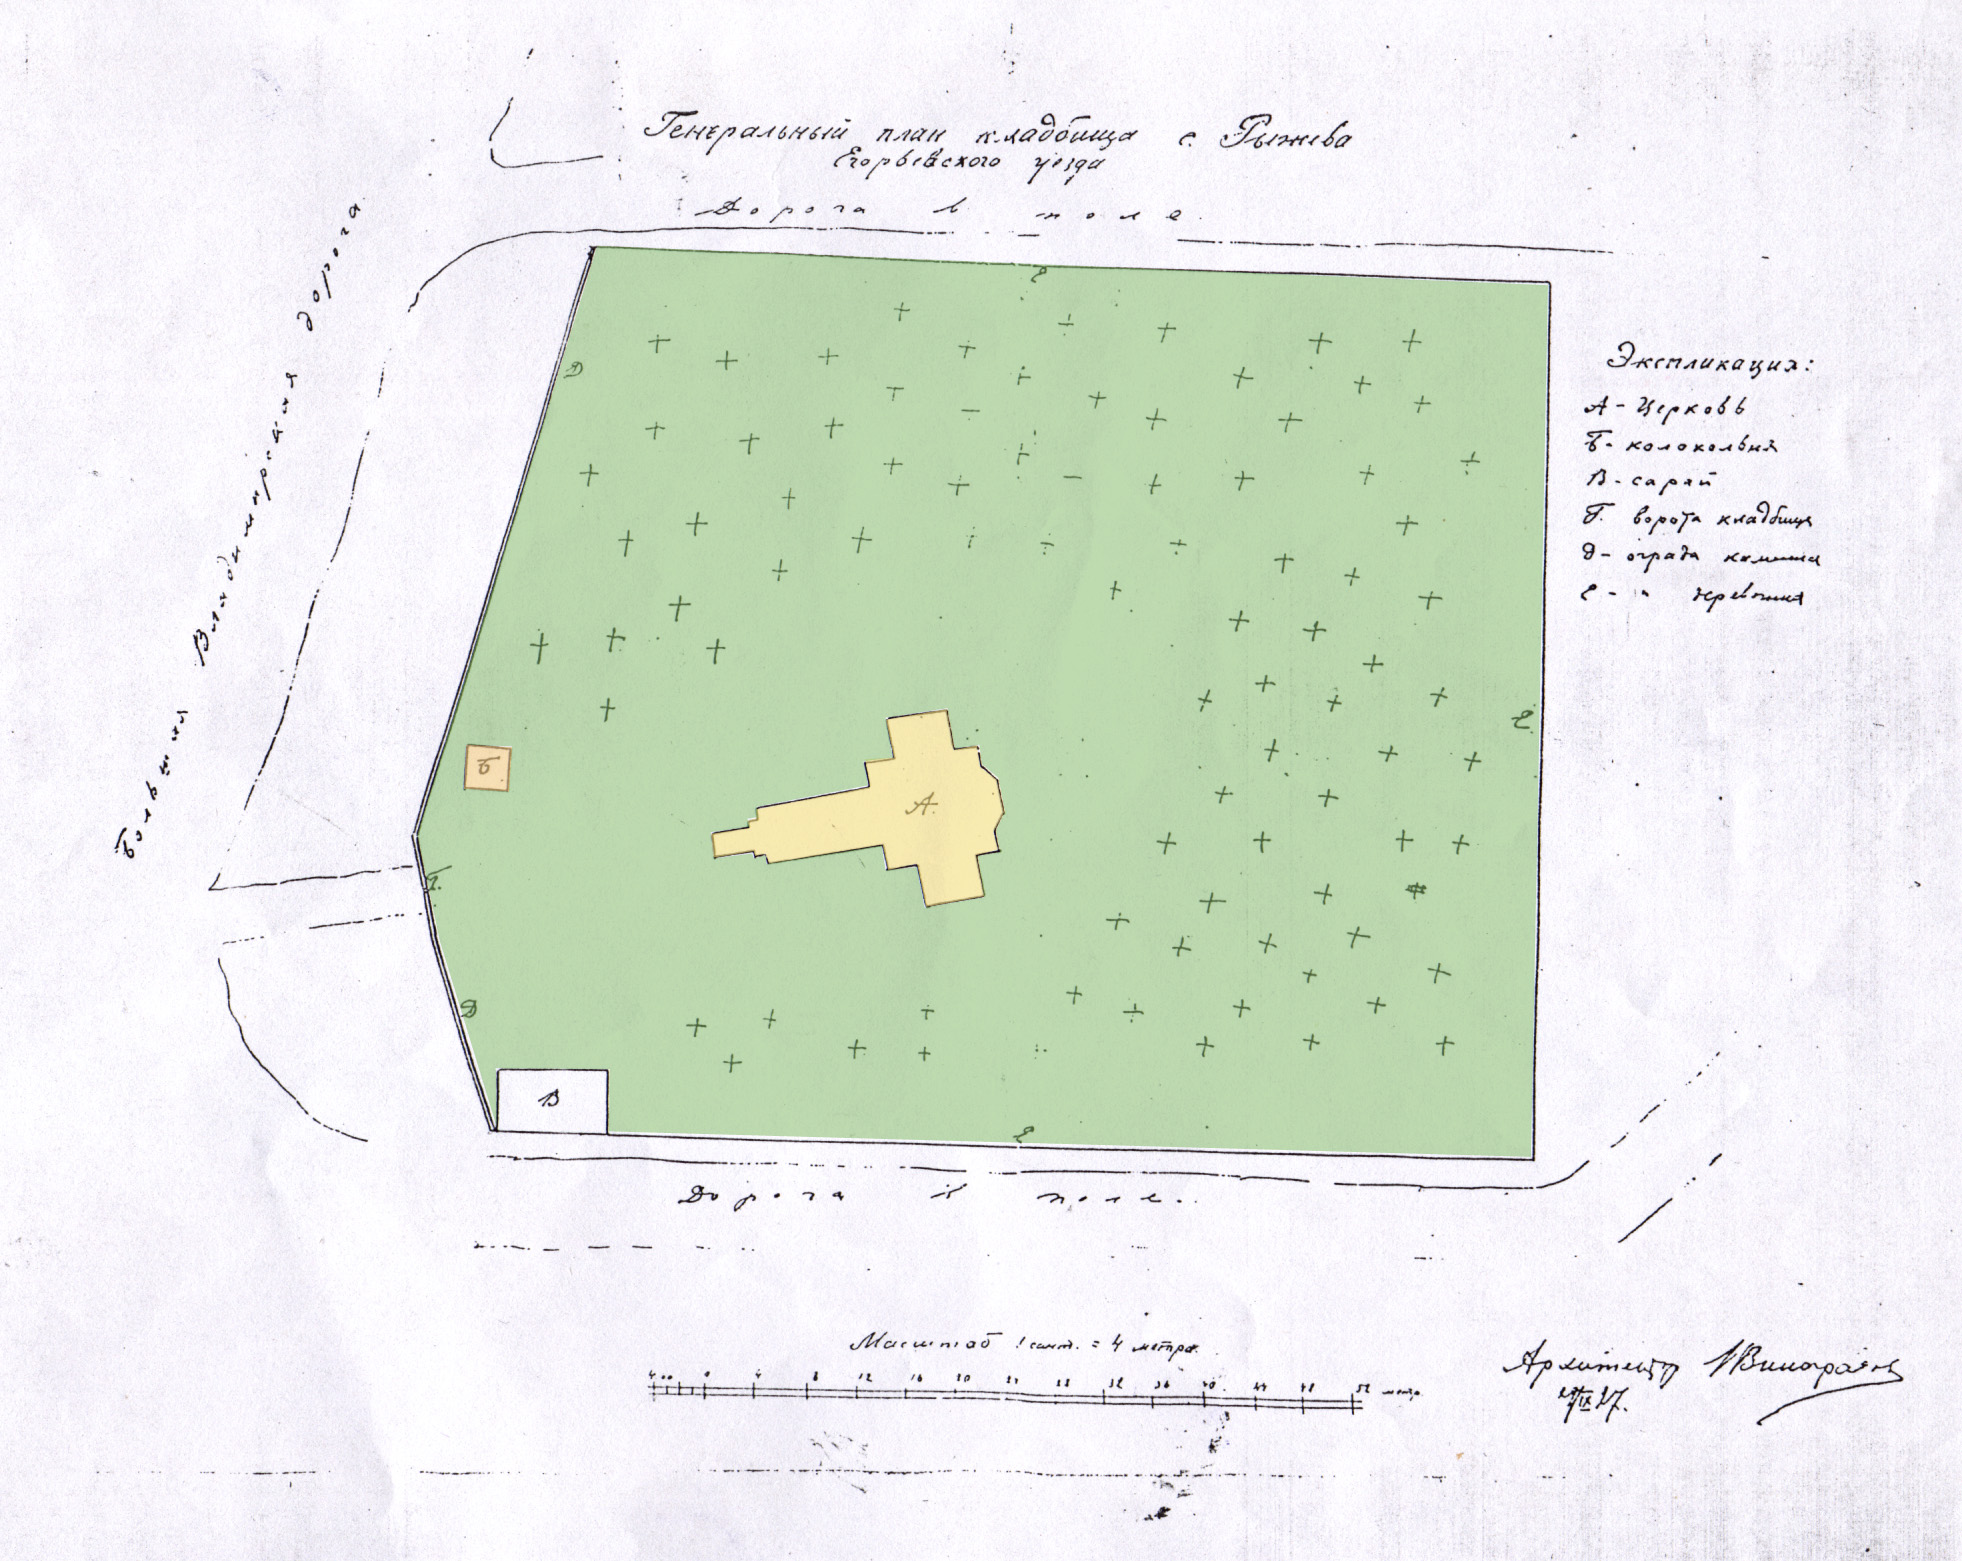 Генеральный план кладбища с. Рыжева
Егорьевского уезда
Дорога в поле.
Большая Владимирская дорога
Е
Д
Экспликация:
А - Церковь
Б - колокольня
В - сарай
Г. ворота кладбища
Д - ограда каменная
Е - " деревянная
Е.
Б
А.
Г.
Д
В
Е
Дорога в поле.
Масштаб 1 сант. = 4 метра.
4 0 4 8 12 16 20 24 28 32 36 40 44 48 52 метр.
Архитектор Виноградов
IX 27.